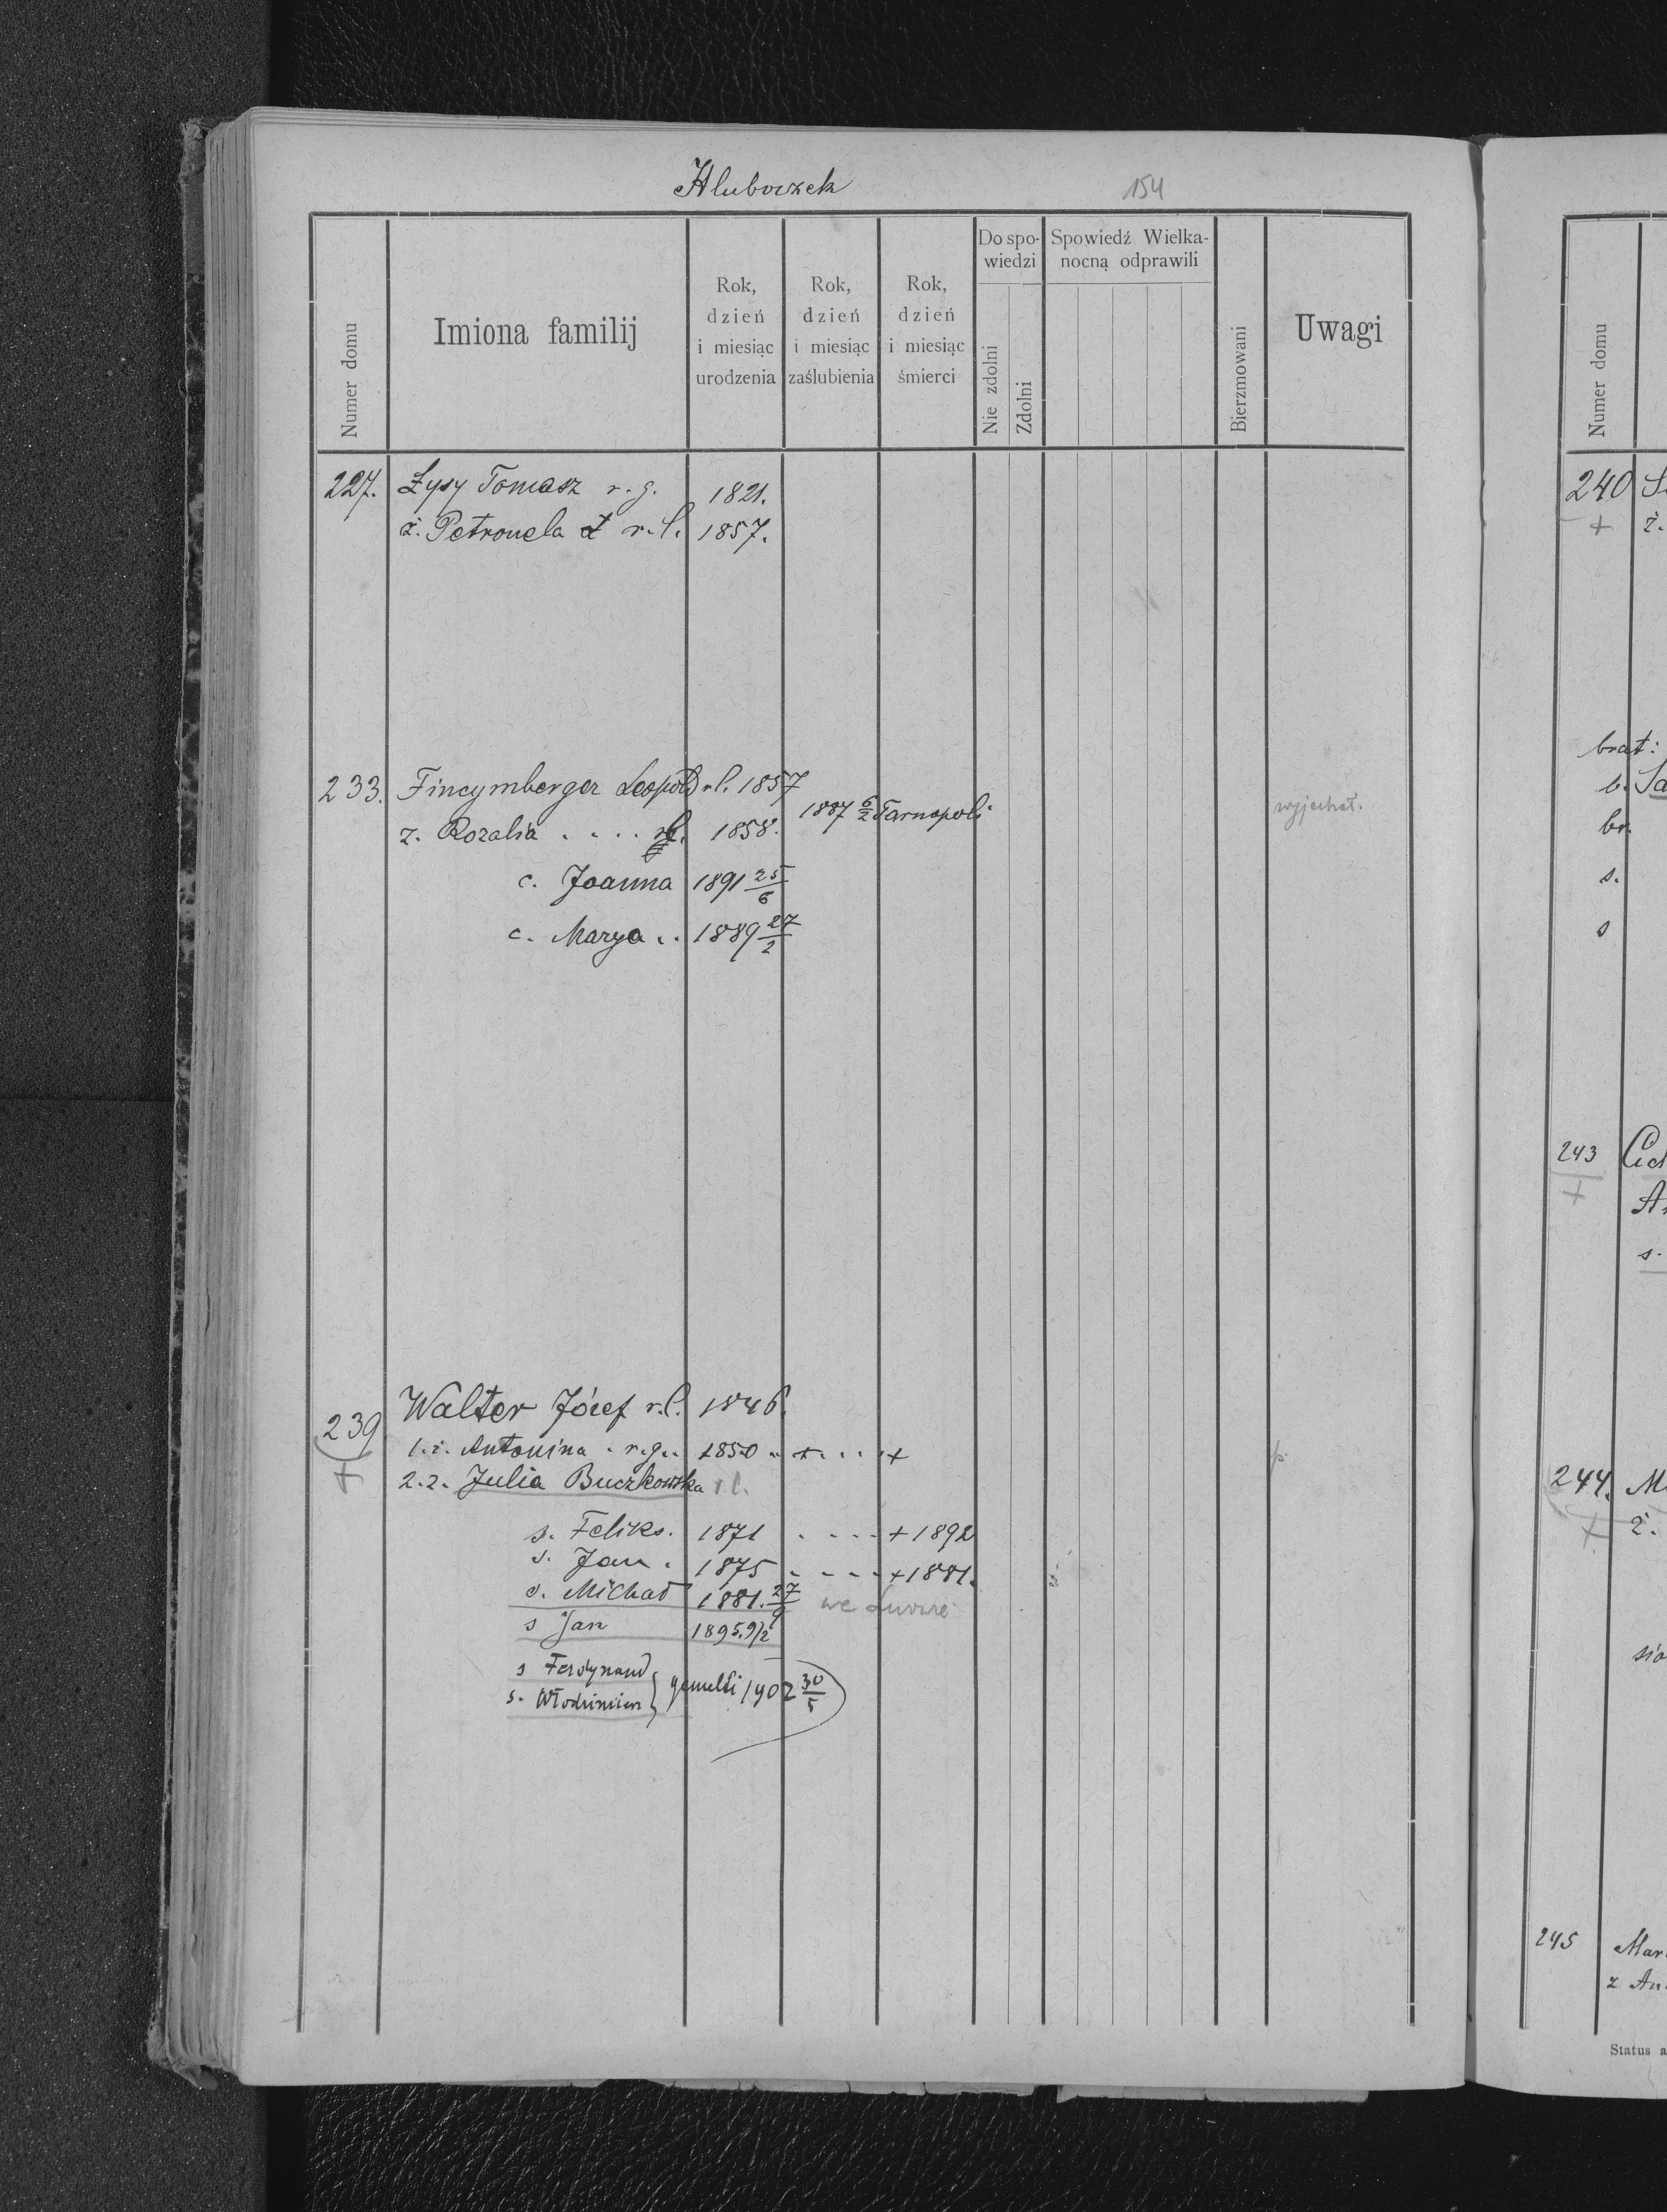 Hluboczek 154
Numer domu
Imiona familij
Rok, dzień i miesiąc urodzenia
Rok, dzień i miesiąc zaślubienia
Rok, dzień i miesiąc śmierci
Do spowiedzi
Nie zdolni
Zdolni
Spowiedź Wielkanocną odprawili
Bierzmowani
Uwagi
227. Łysy Tomasz r. g. 1821.
ż. Petronela Ł r. l. 1857.
233. Fincymberger Leopold r. l. 1857
ż. Rozalia . . . . 1858. 1887 6/2 Tarnopoli wyjechał.
c. Joanna 1891 25/6
c. Marya . . 1889 27/2
239. Walter Józef r. l. 1846.
1. ż. Antonina . r. g. . +850 . + . . . +
+ 2. ż. Julia Buczkowska r l.
s. Feliks. 1871 . . . . + 1892
s. Jan . 1875 . . . . + 1881.
s. Michał 1881. 27/9 we Lwowie
s Jan 1895. 9/2
s Ferdynand } gemelli 1902 30/5
s. Włodzimierz
Numer domu
240
+ ż.
brat:
b.
br.
s.
s
243
+
s.
244.
+ ż.
245 Mar
z An
Status a